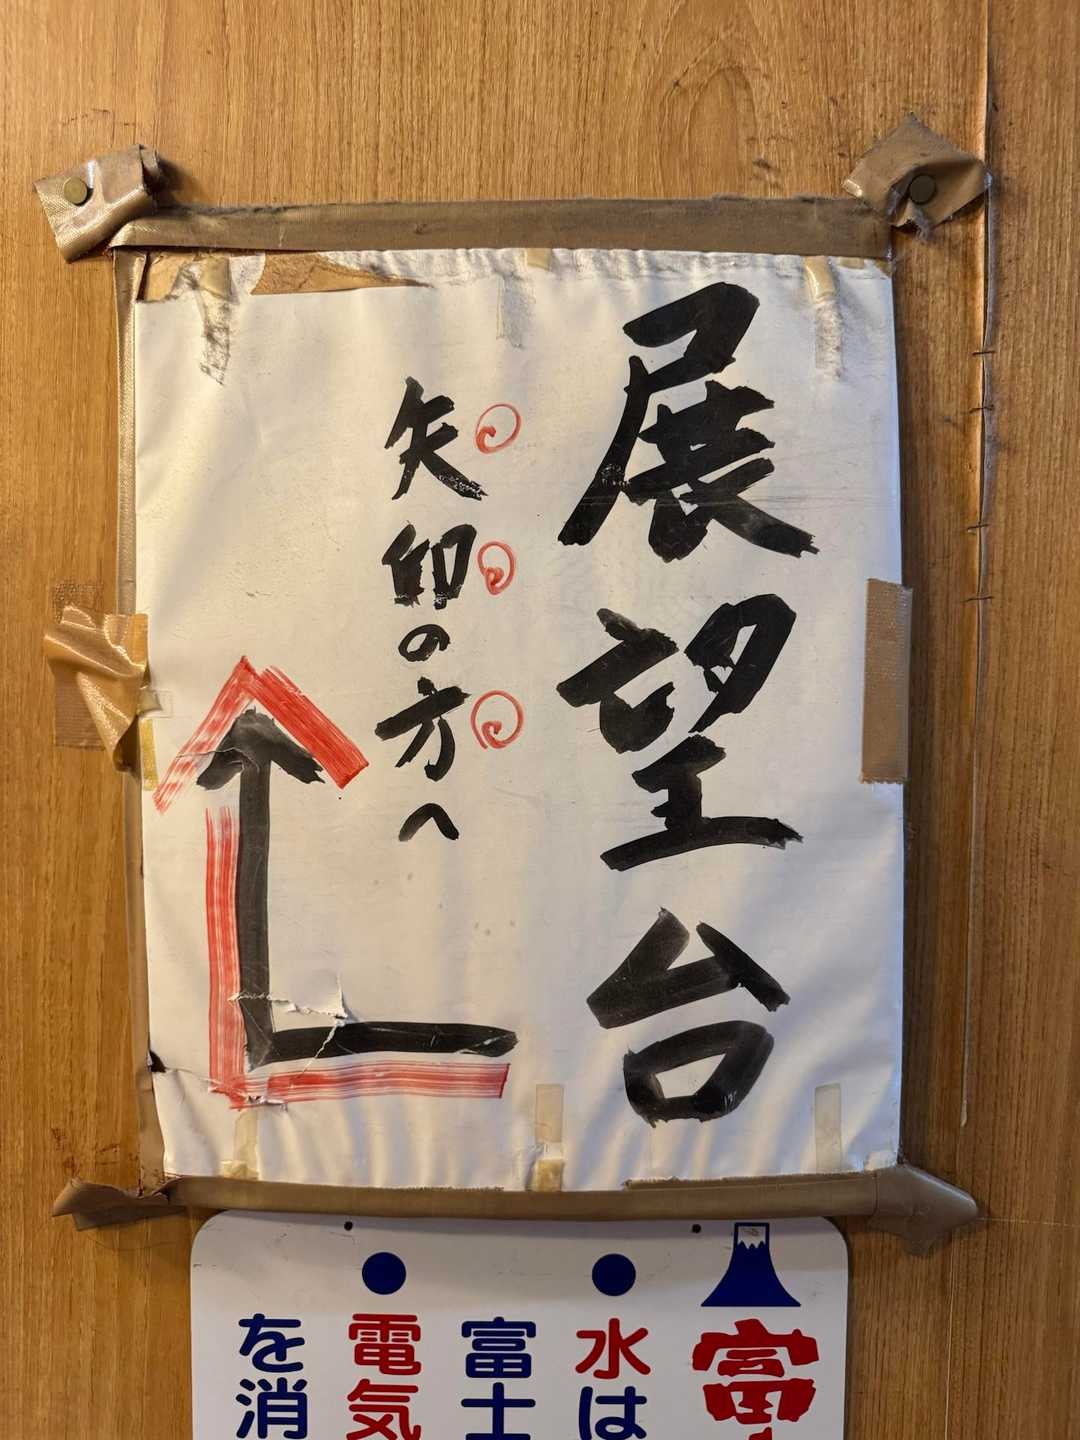 展望台
矢印の方へ
富
水は
富士
電気
を消